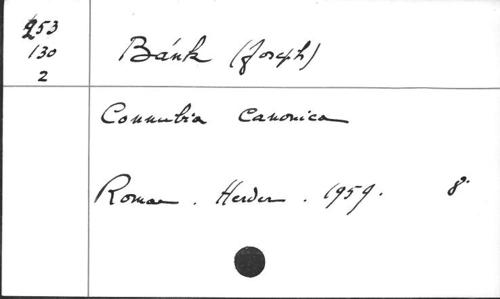 253
130
2
Bánk (Joseph)
Connubia canonica
Romae. Herder. 1959. 8°